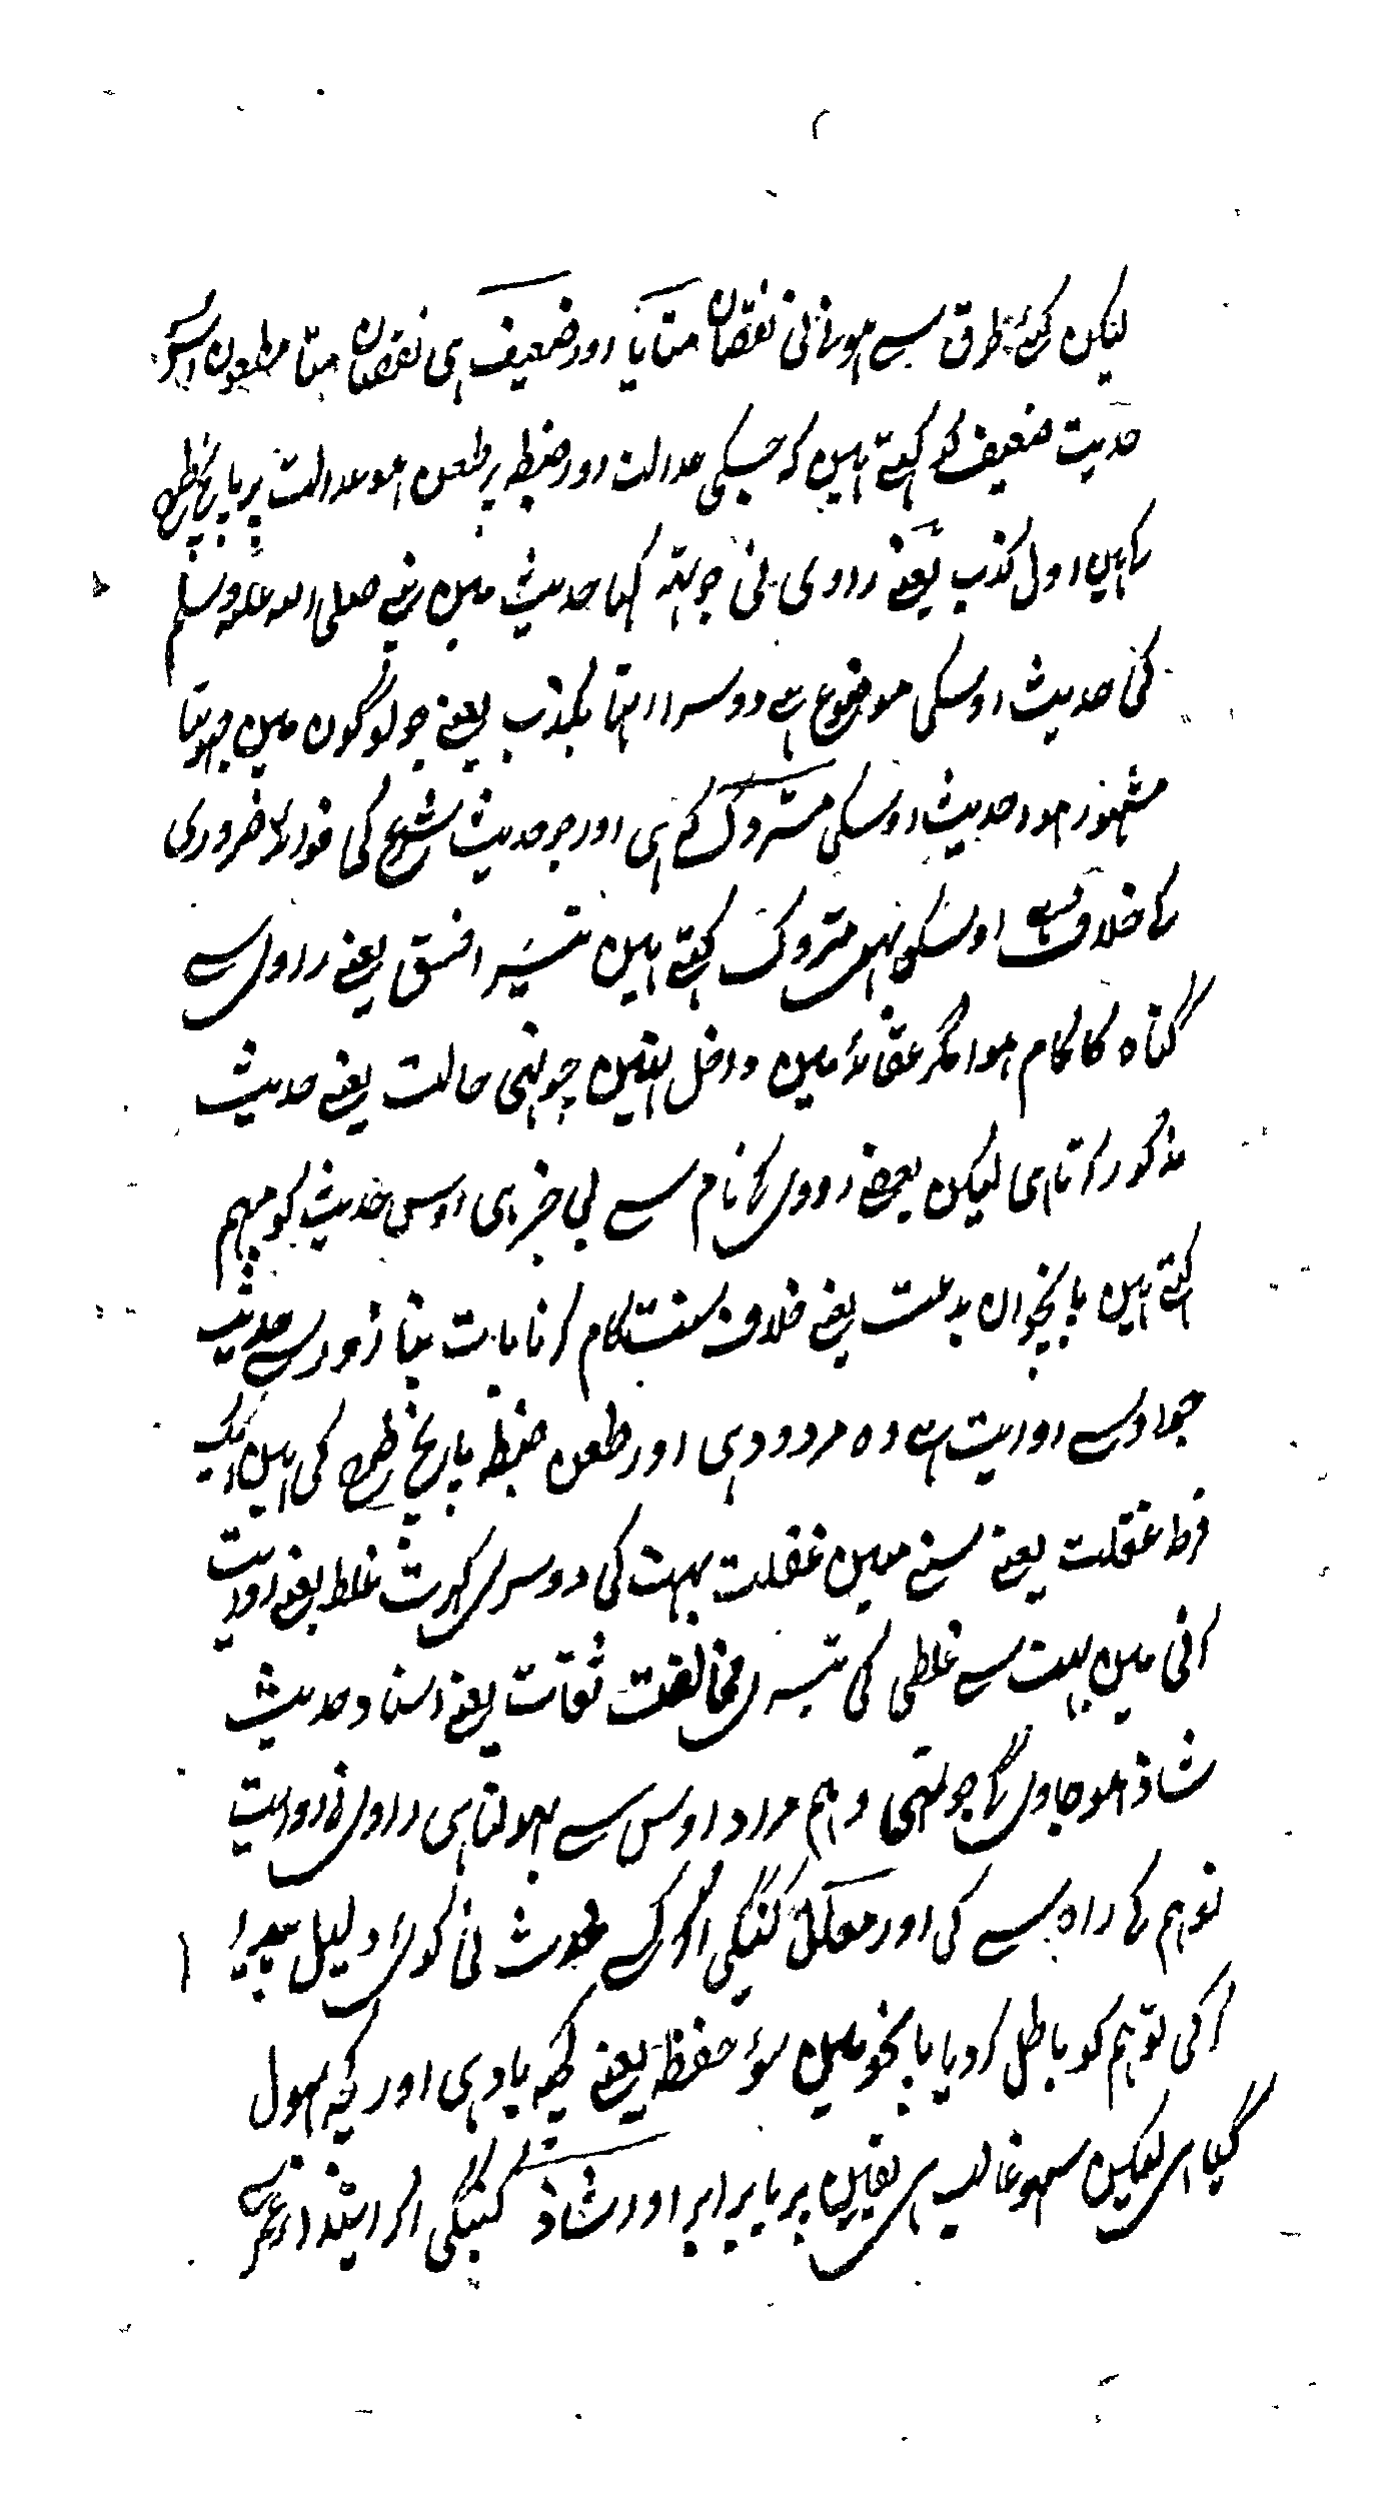 لیکن کئی طرق سے ہونی نی نقصان مٹایا اور ضعیف ہی نقصان مٹا مطعون
حدیث ضعیف کو کہتے ہین کہ جسکی عدالت اور ضبط پر طعن ہو عدالت پر پانچ طرح
کا ہین اول کذب یعنے راوی نی جوہٹہ کہا حدیث مین نبی صلی اللہ علیہ وسلم
کی حدیث اوسکی موضوع ہے دوسرا اتہا بکذب یعنے جو لوگون مین جہوٹا
مشہور ہو حدیث اوسکی متروک ہی اور جو حدیث شرع کی قواعد ضروری
کا خلاف ہے اوسکو بہی متروک کہتے ہین تیسرا فسق یعنے راوی سے
گناہ کا کام ہوا مگر عقائد مین داخل نہین چوتہی حالت یعنے حدیث
مذکور کرتا ہی لیکن بعضے راوی کا نام سے بی خبر ہی اوس حدیث کو مبہم
کہتے ہین پانچوان بدعت یعنے خلاف سنت کام کرنا بات بنا زور سے حدیث
جو اوس سے روایت ہے وہ مردود ہی اور طعن ضبط پانچ طرح کی ہین ایک
فرط غفلت یعنے سننے مین غفلت بہت کی دوسری کثرت غلط یعنے روایت
کرنی مین بہت سے غلطی کی تیسری مخالفت ثقات یعنے اسناد حدیث
شاذ ہو جاوی گا چوتہی وہم مراد اوس سے بہولنا ہی راوی نی روایت
توہم کا راہ سے کی اور معلل کہنیگی اگر کسی محدث نی کوئی دلیل پیدا
کرکی توہم کو باطل کردیا پانچوین سوء حفظ یعنے کچہ یاد ہی اور کچہ بہول
گیا ہی لیکن سہو غالب ہی یقین پر یا برابر اور شاذ کہنیگی اگر ابتداء عمر سے